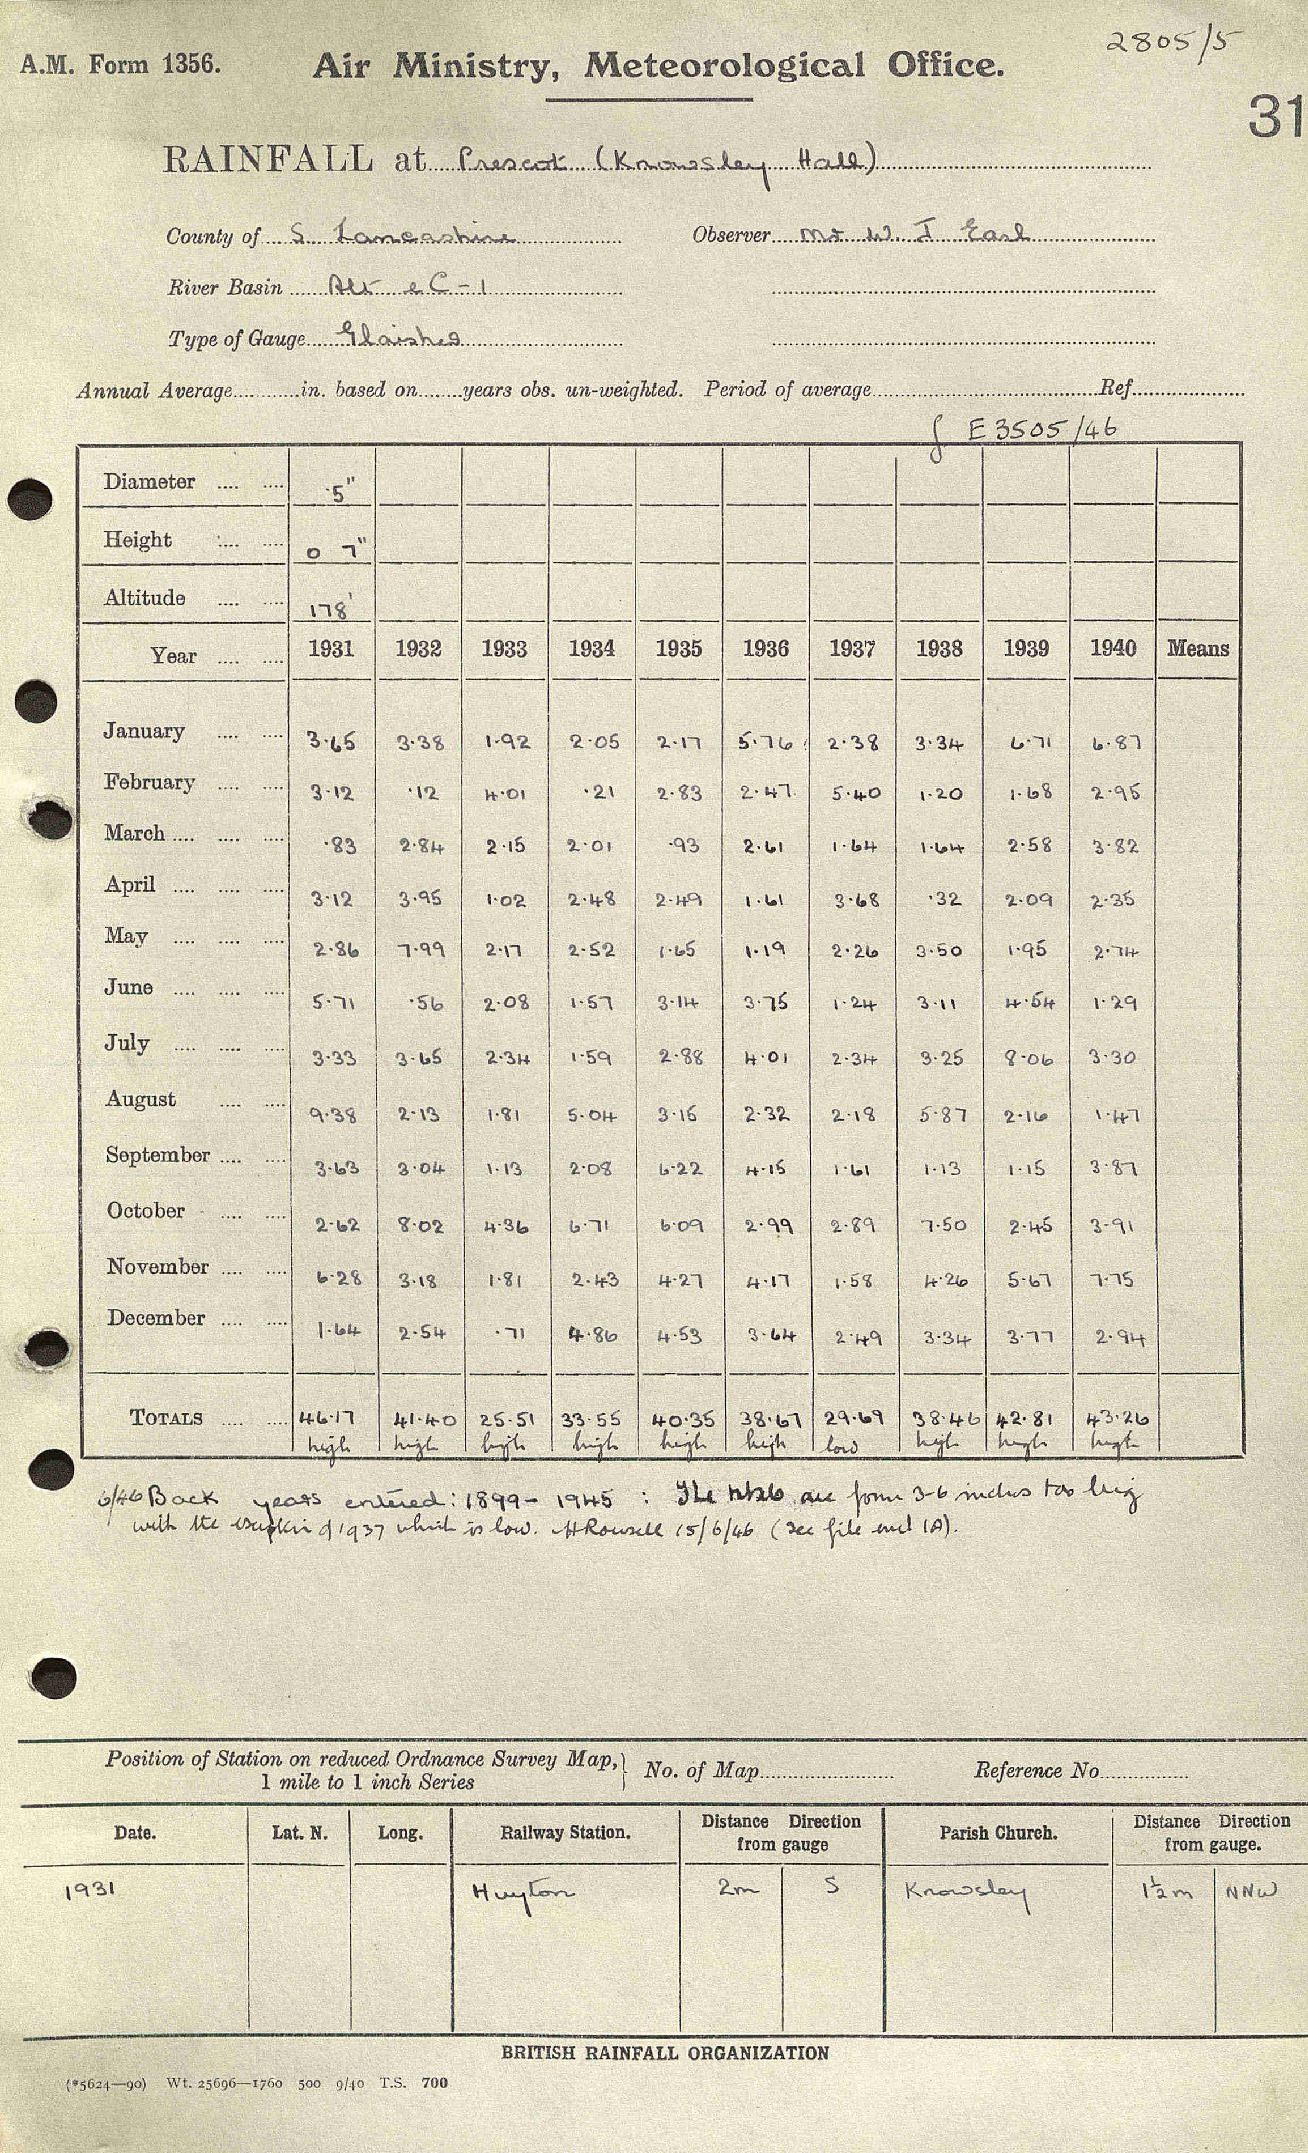 2805/5
A.M. Form 1356. Air Ministry, Meteorological Office.
31
RAINFALL at Prescot (Knowsley Hall)
County of S. Lancashire Observer Mr W. J Earl
River Basin Alt & C-1
Type of Gauge Glaisher
Annual Average in. based on years obs. un-weighted. Period of average Ref
E 3505/46
Diameter .... .... 5"
Height .... .... 0 7"
Altitude .... .... 178'
Year .... .... 1931 1932 1933 1934 1935 1936 1937 1938 1939 1940 Means
January .... .... 3·65 3·38 1·92 2·05 2·17 5·76 2·38 3·34 6·71 6·87
February .... .... 3·12 ·12 4·01 ·21 2·83 2·47 5·40 1·20 1·68 2·95
March .... .... .... ·83 2·84 2·15 2·01 ·93 2·61 1·64 1·64 2·58 3·82
April .... .... .... 3·12 3·95 1·02 2·48 2·49 1·61 3·68 ·32 2·09 2·35
May .... .... .... 2·86 7·99 2·17 2·52 1·65 1·19 2·26 3·50 1·95 2·74
June .... .... .... 5·71 ·56 2·08 1·57 3·14 3·75 1·24 3·11 4·54 1·29
July .... .... .... 3·33 3·65 2·34 1·59 2·88 4·01 2·34 3·25 8·06 3·30
August .... .... 9·38 2·13 1·81 5·04 3·15 2·32 2·18 5·87 2·16 1·47
September .... .... 3·63 3·04 1·13 2·08 6·22 4·15 1·61 1·13 1·15 3·87
October .... .... 2·62 8·02 4·36 6·71 6·09 2·99 2·89 7·50 2·45 3·91
November .... .... 6·28 3·18 1·81 2·43 4·27 4·17 1·58 4·26 5·67 7·75
December .... .... 1·64 2·54 ·71 4·86 4·53 3·64 2·49 3·34 3·77 2·94
TOTALS .... .... 46·17 41·40 25·51 33·55 40·35 38·67 29·69 38·46 42·81 43·26
high high high high high high low high high high
6/46 Back years entered: 1899 - 1945 : The are from 3-6 inches too big
with the exception of 1937 which is low. HRowsell 15/6/46 (See file encl 1A).
Position of Station on reduced Ordnance Survey Map, No. of Map Reference No
1 mile to 1 inch Series
Date. Lat. N. Long. Railway Station. Distance Direction from gauge Parish Church. Distance Direction from gauge.
1931 Huyton 2m S Knowsley 1½m NNW
BRITISH RAINFALL ORGANIZATION
(*5624—90) Wt. 25696—1760 500 9/40 T.S. 700